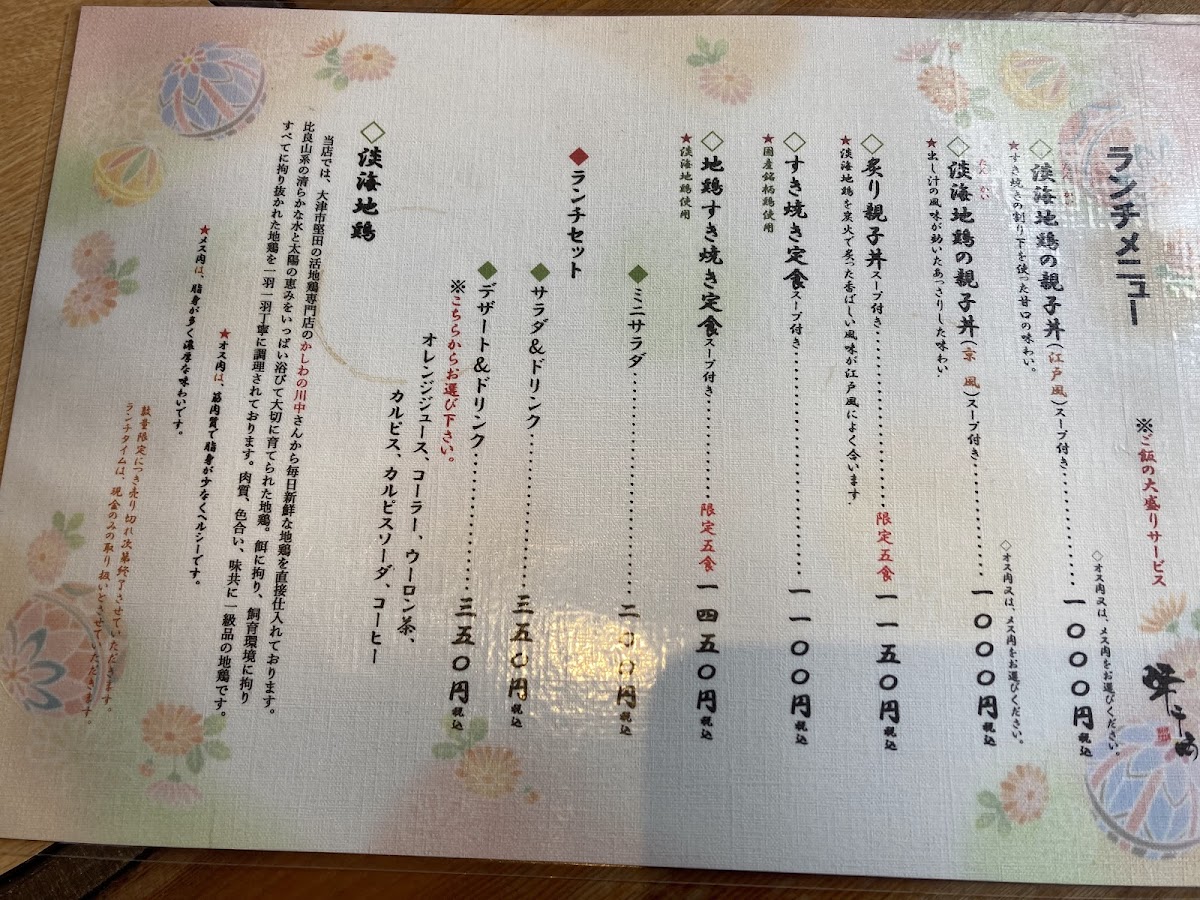 ランチメニュー
※ご飯の大盛りサービス
◇淡海地鶏の親子丼(江戸風)スープ付き……………一〇〇〇円税込
たんかい
★すき焼きの割り下を使った甘口の味わい。
◇オス肉又は、メス肉をお選びください。
◇淡海地鶏の親子丼(京 風)スープ付き……………一〇〇〇円税込
たんかい
★出し汁の風味が効いたあっさりした味わい
◇オス肉又は、メス肉をお選びください。
◇炙り親子丼スープ付き……………限定五食 一一五〇円税込
★淡海地鶏を炭火で炙った香ばしい風味が江戸風によく合います
◇すき焼き定食スープ付き……………一一〇〇円税込
★国産銘柄鶏使用
◇地鶏すき焼き定食スープ付き……………限定五食 一四五〇円税込
★淡海地鶏使用
◆ランチセット
◆ミニサラダ……………二〇〇円税込
◆サラダ&ドリンク……………三五〇円税込
◆デザート&ドリンク……………三五〇円税込
※こちらからお選び下さい。
オレンジジュース、コーラー、ウーロン茶、
カルピス、カルピスソーダ、コーヒー
◇淡海地鶏
当店では、大津市堅田の活地鶏専門店のかしわの川中さんから毎日新鮮な地鶏を直接仕入れております。
比良山系の清らかな水と太陽の恵みをいっぱい浴びて大切に育てられた地鶏。餌に拘り、飼育環境に拘り
すべてに拘り抜かれた地鶏を一羽一羽丁寧に調理されております。肉質、色合い、味共に一級品の地鶏です。
★オス肉は、筋肉質で脂身が少なくヘルシーです。
★メス肉は、脂身が多く濃厚な味わいです。
数量限定につき売り切れ次第終了させていただきます。
ランチタイムは、現金のみの取り扱いとさせていただきます。